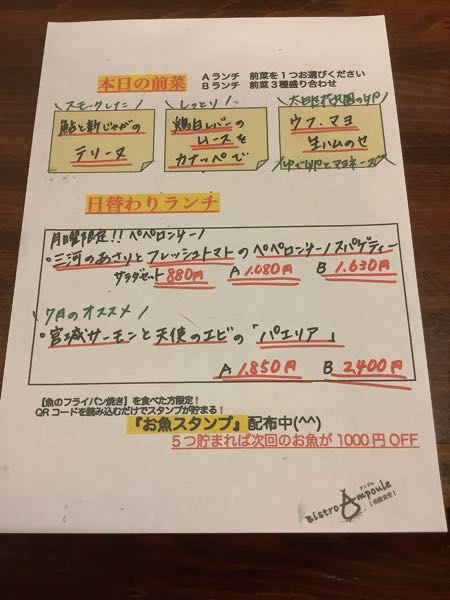 本日の前菜
Aランチ 前菜を1つお選びください
Bランチ 前菜3種盛り合わせ
スモークした
鮎と新じゃがの
テリーヌ
しっとり
鶏白レバーの
ムースを
カナッペで
ウフ・マヨ
生ハムのせ
(ゆで卵とマヨネーズ)
日替わりランチ
月曜限定!! ペペロンチーノ
・三河のあさりとフレッシュトマトのペペロンチーノスパゲティー
サラダセット 880円 A 1.080円 B 1.630円
7月のオススメ
・宮城サーモンと天使のエビの「パエリア」
A 1.850円 B 2.400円
【魚のフライパン焼き】を食べた方限定!
QRコードを読み込むだけでスタンプが貯まる!
『お魚スタンプ』配布中(^^)
5つ貯まれば次回のお魚が1000円OFF
Bistro Ampoule